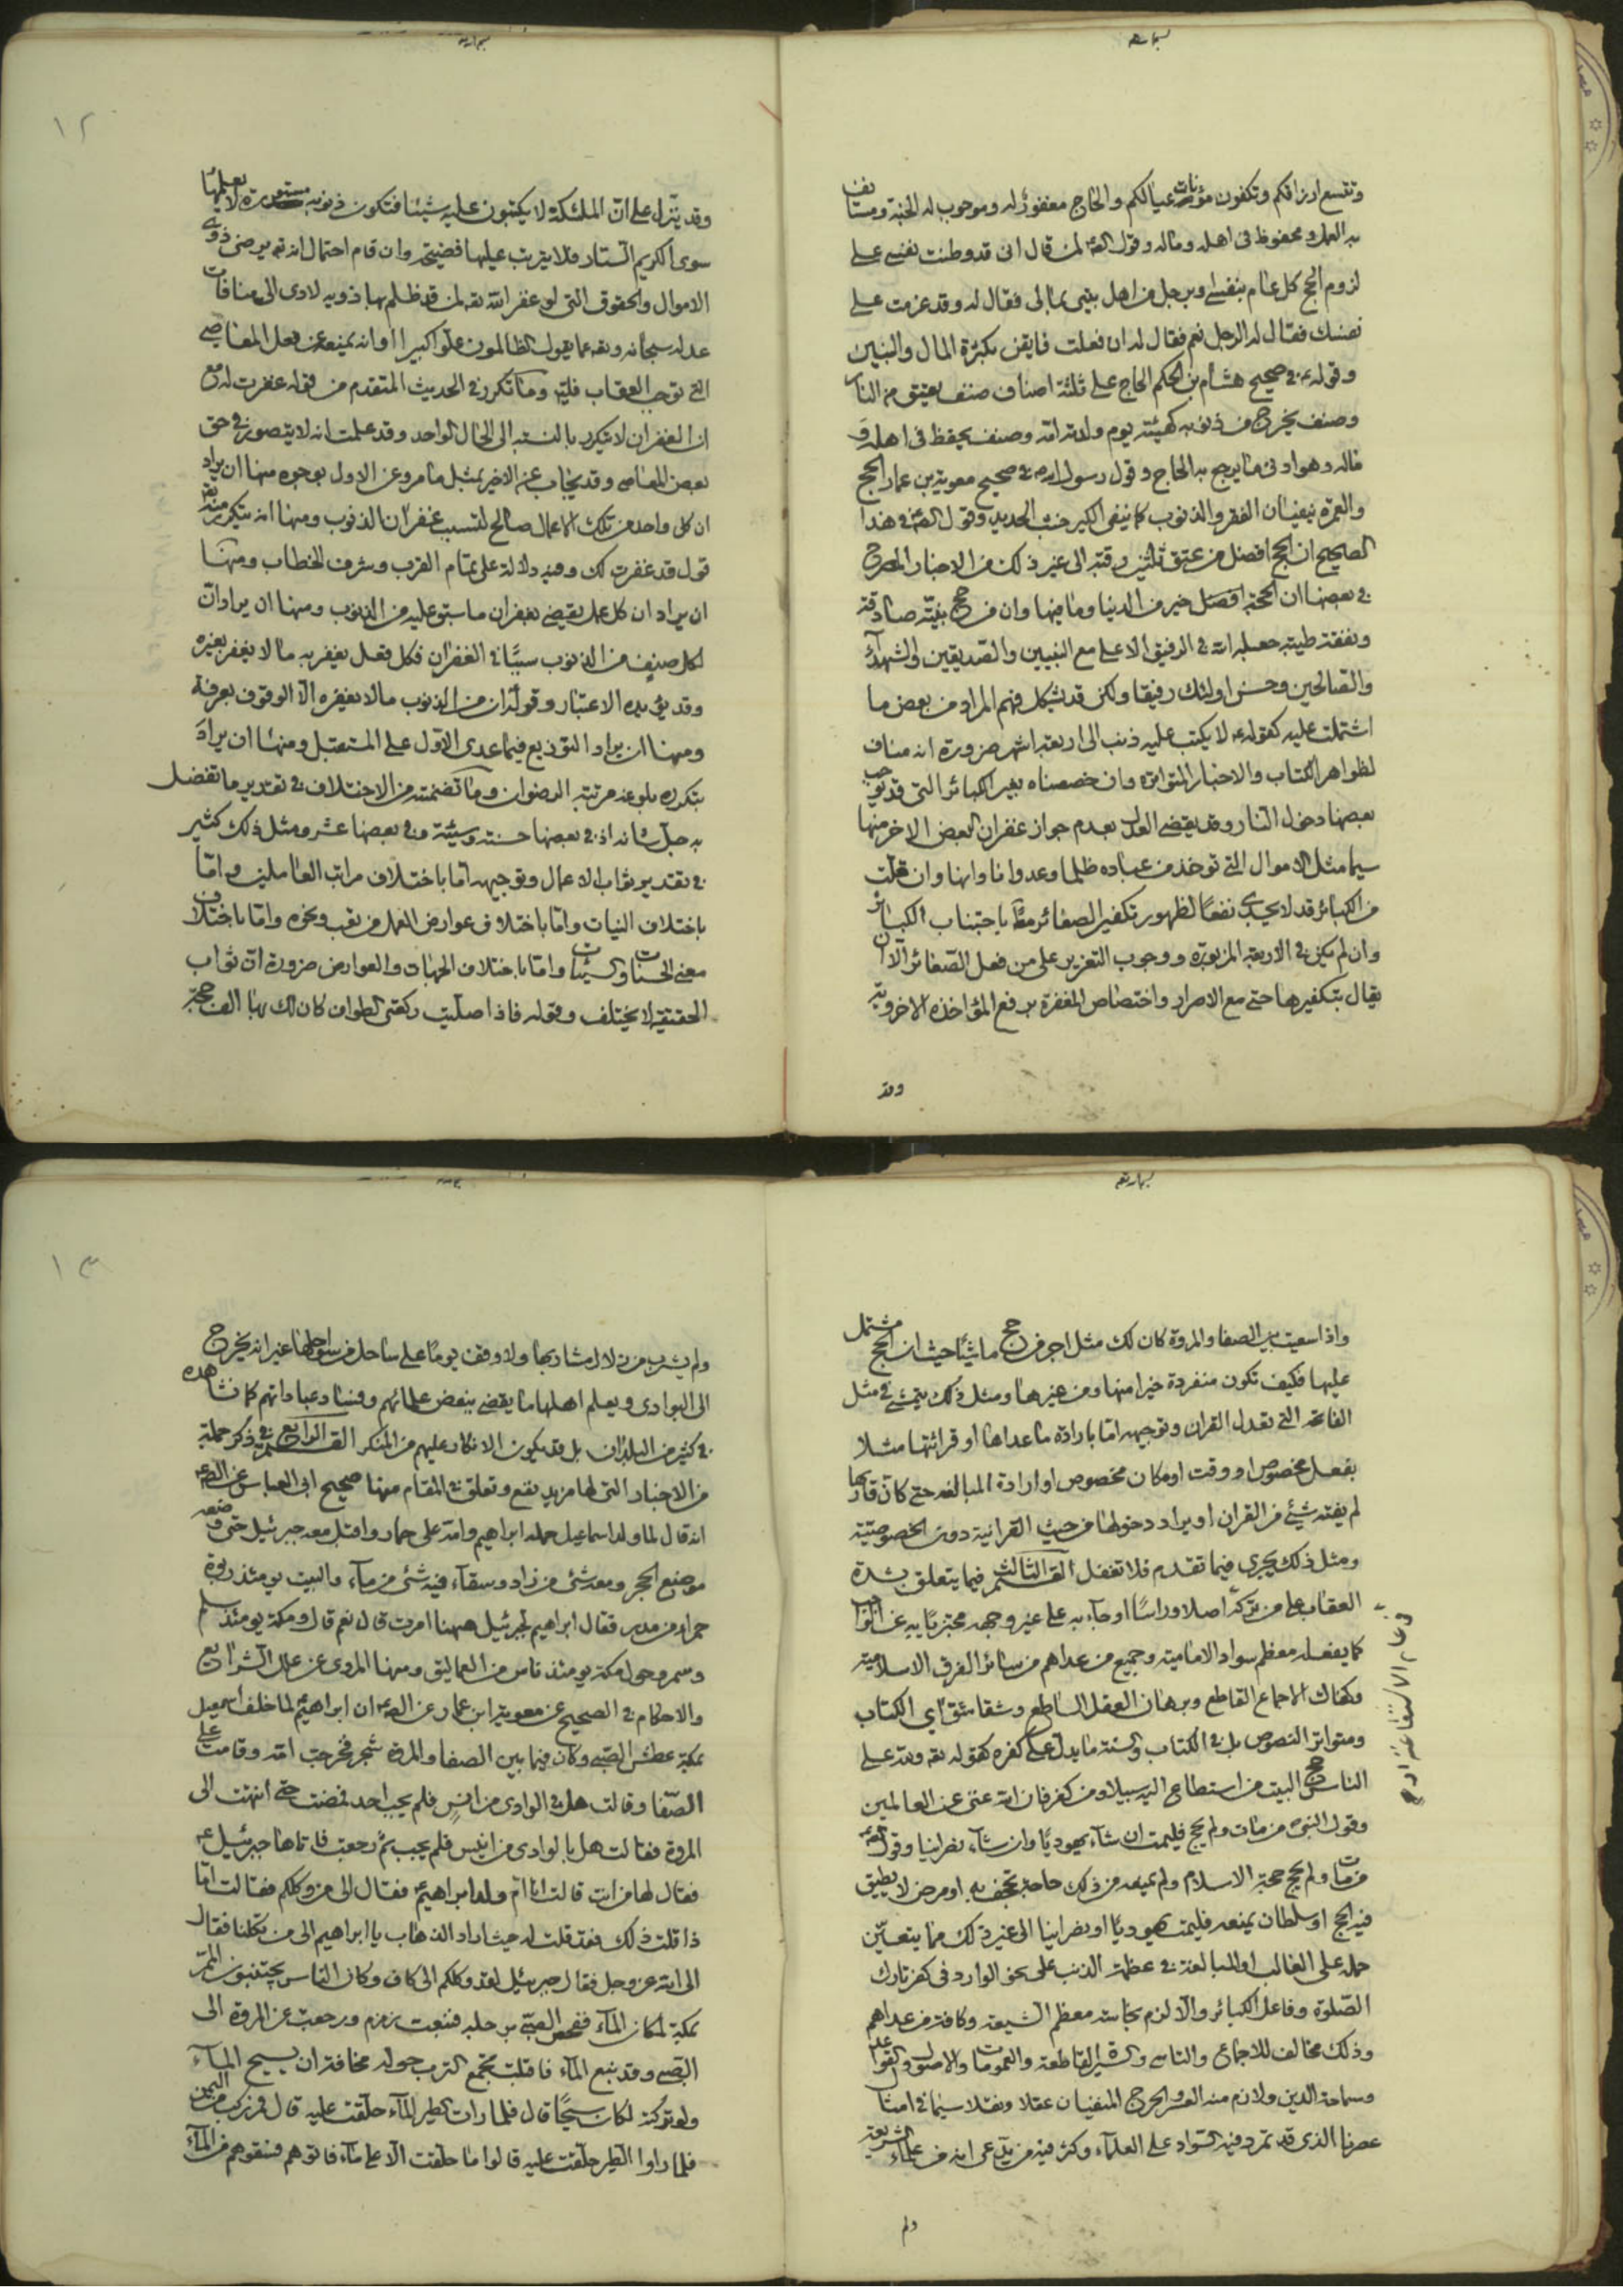 وتتسع ارزاقكم وتكفون مؤنات عيالكم والحاج مغفور له وموجوب له الجنة ومستانف
به العمل ومحفوظ في اهله وماله وقول لمن قال اني قد وطنت نفسي على
لزوم الحج كل عام بنفسي او برجل من اهل بيتي بمالي فقال له وقد عزمت على
نفسك فقال له الرجل نعم فقال له ان فعلت فايقن بكثرة المال والبنين
وقوله في صحيح هشام بن الحكم الحاج على ثلثة اصناف صنف يعتق من النار
وصنف يخرج من ذنوبه كهيئته يوم ولدته امه وصنف يحفظ في اهله و
ماله وهو ادنى ما يرجع به الحاج وقول رسول الله في صحيح معوية بن عمار الحج
والعمرة ينفيان الفقر والذنوب كما ينفي الكير خبث الحديد وقول في هذا
الصحيح ان الحج افضل من عتق ثلثين رقبة الى غير ذلك من الاخبار المصرح
في بعضها ان الحجة افضل خير من الدنيا وما فيها وان من حج بنية صادقة
ونفقة طيبة جعله الله في الرفيق الاعلى مع النبيين والصديقين والشهداء
والصالحين وحسن اولئك رفيقا ولكن قد يشكل فهم المراد من بعض ما
اشتملت عليه كقوله لا يكتب عليه ذنب الى اربعة اشهر ضرورة انه مناف
لظواهر الكتاب والاخبار المتواترة وان خصصناه بغير الكبائر التي قد توجب
بعضها دخول النار وقد يقضى العدل بعدم جواز غفران البعض الاخر منها
سيما مثل الاموال التي توخذ من عباده ظلما وعدوانا وانها وان قلت
من الكبائر قد لا يجدى نفعا لظهور تكفير الصغائر باجتناب الكبائر
وان لم يكن في الاربعة المزبورة ووجوب التعزير على من فعل الصغائر الا ان
يقال بتكفيرها حتى مع الاصرار واختصاص المغفرة برفع المؤاخذة الاخروية
وقد
١٢
وقد ينزل على ان الملئكة لا يكتبون عليه شيئا فتكون ذنوبه مستورة لا يعلمها
سوى الكريم الستار فلا يترتب عليها فضيحة وان قام احتمال انه يرضى ذوي
الاموال والحقوق التي لو غفر الله لمن قد ظلم بها ذويه لادى الى منافات
عدله سبحانه وتع عما يقول الظالمون علوا كبيرا او انه يمنعه عن فعل المعاصي
التي توجب العقاب وما تكرر في الحديث المتقدم من قوله غفرت له مع
ان الغفران لا يتكرر بالنسبة الى الحال الواحد وقد علمت انه لا يتصور في حق
بعض المعاصي وقد يجاب عن الاخير بمثل ما مر وعن الاول بوجوه منها ان يراد
ان كل واحد من تلك الاعمال صالح لتسبب غفران الذنوب ومنها انه يتكرر منه
قول قد غفرت لك وفيه دلالة على تمام القرب وشرف الخطاب ومنها
ان يراد ان كل عمل يقضي بغفران ما سبق عليه من الذنوب ومنها ان يراد ان
لكل صنف من الذنوب سببا في الغفران فكل فعل يغفر به ما لا يغفر بغيره
وقد يؤيده الاعتبار وقوله ان من الذنوب ما لا يغفره الا الوقوف بعرفة
ومنها ان يراد التوزيع فيما عدى الاول على المستقبل ومنها ان يراد
بتكرره بلوغه مرتبة الرضوان وما تضمنته من الاختلاف في تقدير ما تفضل
به جل شانه اذ في بعضها حسنة وسيئة وفي بعضها عشر ومثل ذلك كثير
في تقدير ثواب الاعمال وتوجيهه اما باختلاف مراتب العاملين واما
باختلاف النيات واما باختلاف عوارض العمل من تعب ونحوه واما باختلاف
معنى الحسنات والسيئات واما باختلاف الجهات والعوارض ضرورة ان ثواب
الحقيقة لا يختلف وقوله فاذا صليت ركعتي الطواف كان لك بها الف حجة
واذا سعيت بين الصفا والمروة كان لك مثل اجر من حج ماشيا حيث ان الحج مشتمل
عليها فكيف تكون منفردة خيرا منها ومن غيرها ومثل ذلك يتمشى في مثل
الفاتحة التي تعدل القران وتوجيهه اما بارادة ما عداها او قرائتها مثلا
بفعل مخصوص او وقت او مكان مخصوص او ارادة المبالغة حتى كان قاريها
لم يفته شيئ من القران او يراد دخولها من حيث القرانية دون الخصوصية
ومثل ذلك يجري فيما تقدم فلا تغفل القسم الثالث فيما يتعلق بشدة
العقاب على من تركه اصلا وراسا او جاء به على غير وجهه مجتزيا به عن الثواب
كما يفعله معظم سواد الامامية وجميع من عداهم من سائر الفرق الاسلامية
وكفاك الاجماع القاطع وبرهان العقل الساطع وشقاشق اي الكتاب
ومتواتر النصوص بل في الكتاب والسنة ما يدل على كفره كقوله تع ولله على
الناس حج البيت من استطاع اليه سبيلا ومن كفر فان الله غني عن العالمين
وقول النبي من مات ولم يحج فليمت ان شاء يهوديا وان شاء نصرانيا وقول
من مات ولم يحج حجة الاسلام ولم يمنعه من ذلك حاجة تجحف به او مرض لا يطيق
فيه الحج او سلطان يمنعه فليمت يهوديا او نصرانيا الى غير ذلك مما يتعين
حمله على الغالب او المبالغة في عظمة الذنب على نحو الوارد في كفر تارك
الصلوة وفاعل الكبائر والا لزم نجاسة معظم الشيعة وكافة من عداهم
وذلك مخالف للاجماع والتاسي والسير القاطعة والعمومات والاصول والقواعد
وسماحة الدين ولازم منه العسر والحرج المنفيان عقلا ونقلا سيما في امثال
عصرنا الذي قد تمرد فيه السواد على العلماء وكثر فيه من يدعى انه من علماء الشريعة
ولم
١٣
ولم يشرب من زلال مشاربها ولا وقف يوما على ساحل من سواحلها غير انه يخرج
الى البوادي ويعلم اهلها ما يقضي ببغض علمائهم وفساد عباداتهم كما نشاهده
في كثير من البلدان بل قد يكون الانكار عليهم من المنكر القسم الرابع في ذكر جملة
من الاخبار التي لها مزيد نفع وتعلق في المقام منها صحيح ابي العباس عن
انه قال لما ولد اسماعيل حمله ابراهيم وامه على حمار واقبل معه جبرئيل حتى وضعه
موضع الحجر ومعه شئ من زاد وسقاء فيه شئ من ماء والبيت يومئذ ربوة
حمراء من مدر فقال ابراهيم لجبرئيل ههنا امرت قال نعم قال ومكة يومئذ سلم
وسمر وحول مكة يومئذ ناس من العماليق ومنها المروى عن علل الشرائع
والاحكام في الصحيح عن معوية ابن عمار عن ان ابراهيم لما خلف اسمعيل
بمكة عطش الصبي وكان فيما بين الصفا والمروة شجر فخرجت امه وقامت على
الصفا وقالت هل في الوادي من انيس فلم يجب احد فمضت حتى انتهت الى
المروة فقالت هل بالوادي من انيس فلم يجب ثم رجعت فاتاها جبرئيل
فقال لها من انت قالت انا ام ولد ابراهيم فقال الى من وكلكم فقالت اما
ذا قلت ذلك فقد قلت له حيث اراد الذهاب يا ابراهيم الى من تكلنا فقال
الى الله عز وجل فقال جبرئيل لقد وكلكم الى كاف وكان الناس يجتنبون الممر
بمكة لمكان الماء ففحص الصبي برجله فنبعت زمزم ورجعت عن المروة الى
الصبي وقد نبع الماء فاقبلت تجمع التراب حوله مخافة ان يسيح الماء
ولو تركته لكان سيحا قال فلما رات الطير الماء حلقت عليه قال فمر ركب من اليمن
فلما راوا الطير حلقت عليه قالوا ما حلقت الا على ماء فاتوهم فسقوهم من الماء